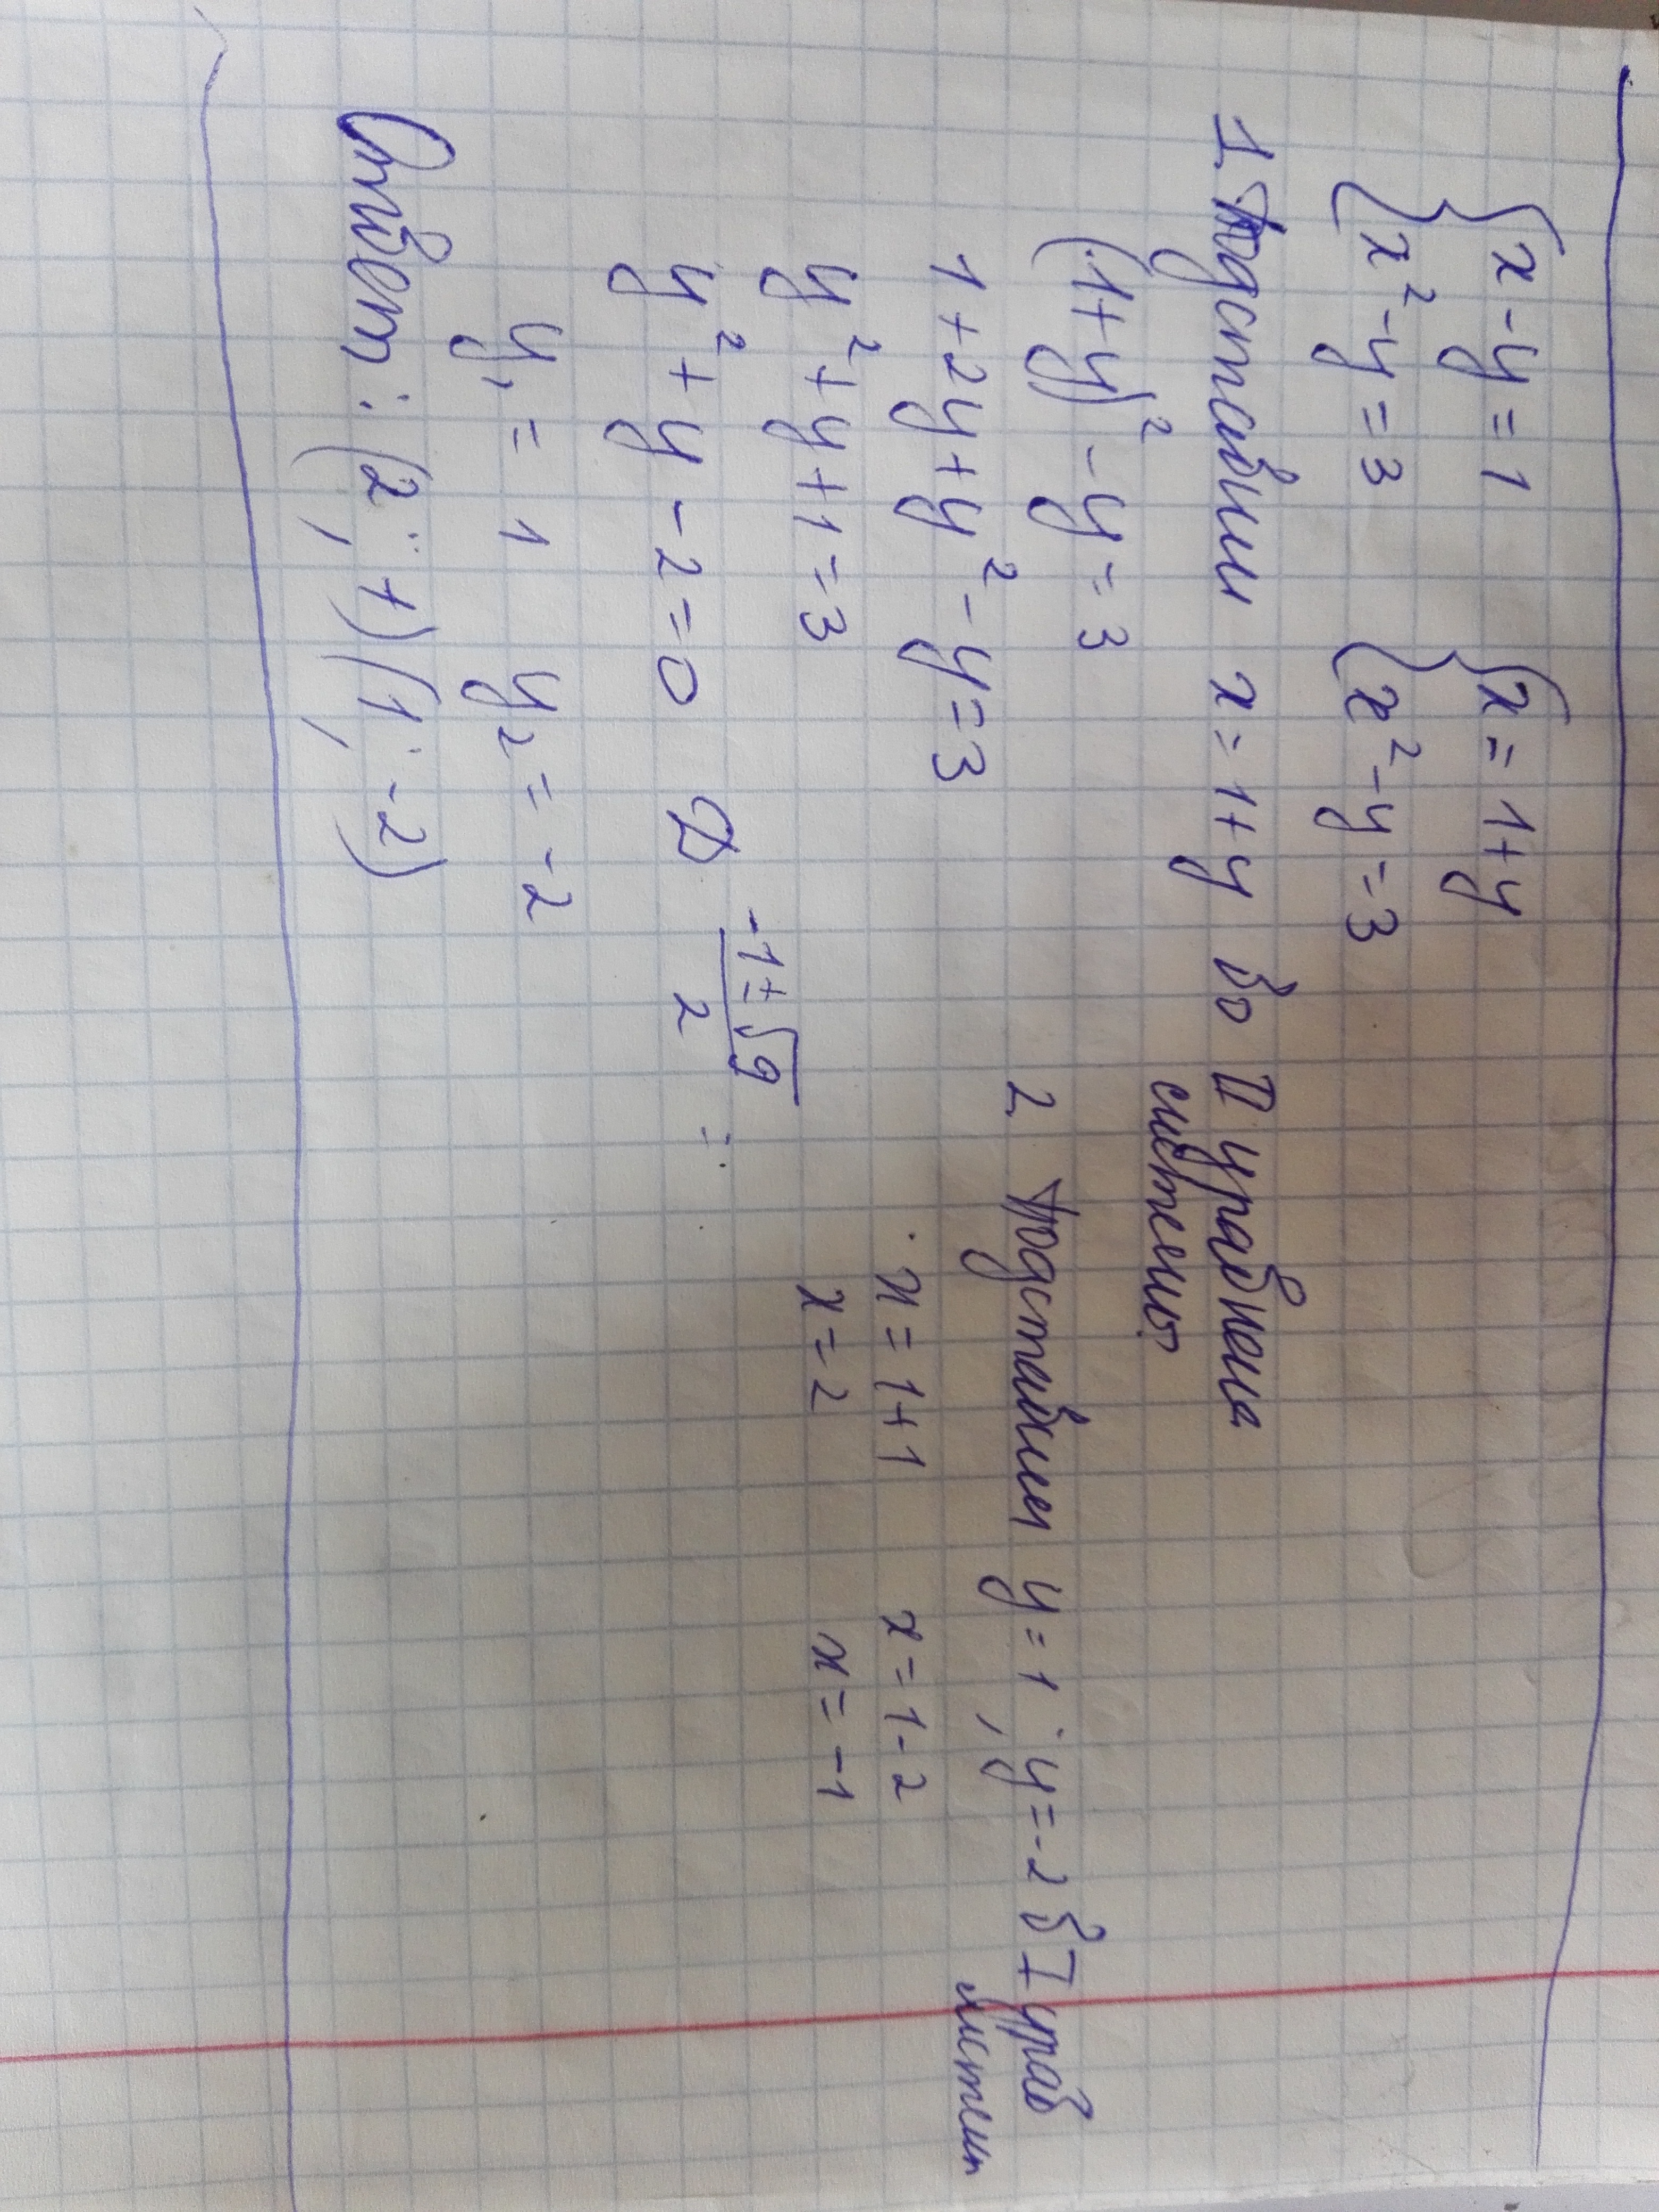 {x - y = 1 {x = 1 + y
{x² - y = 3 {x² - y = 3
1. Подставим x = 1 + y во II уравнени системы
(1 + y)² - y = 3
1 + 2y + y² - y = 3
y² + y + 1 = 3
y² + y - 2 = 0 D (-1 ± √9)/2 =
y₁ = 1 y₂ = -2
2 Подставим y = 1; y = -2 в I урав систем
x = 1 + 1 x = 1 - 2
x = 2 x = -1
Ответ: (2; 1) (1; -2)